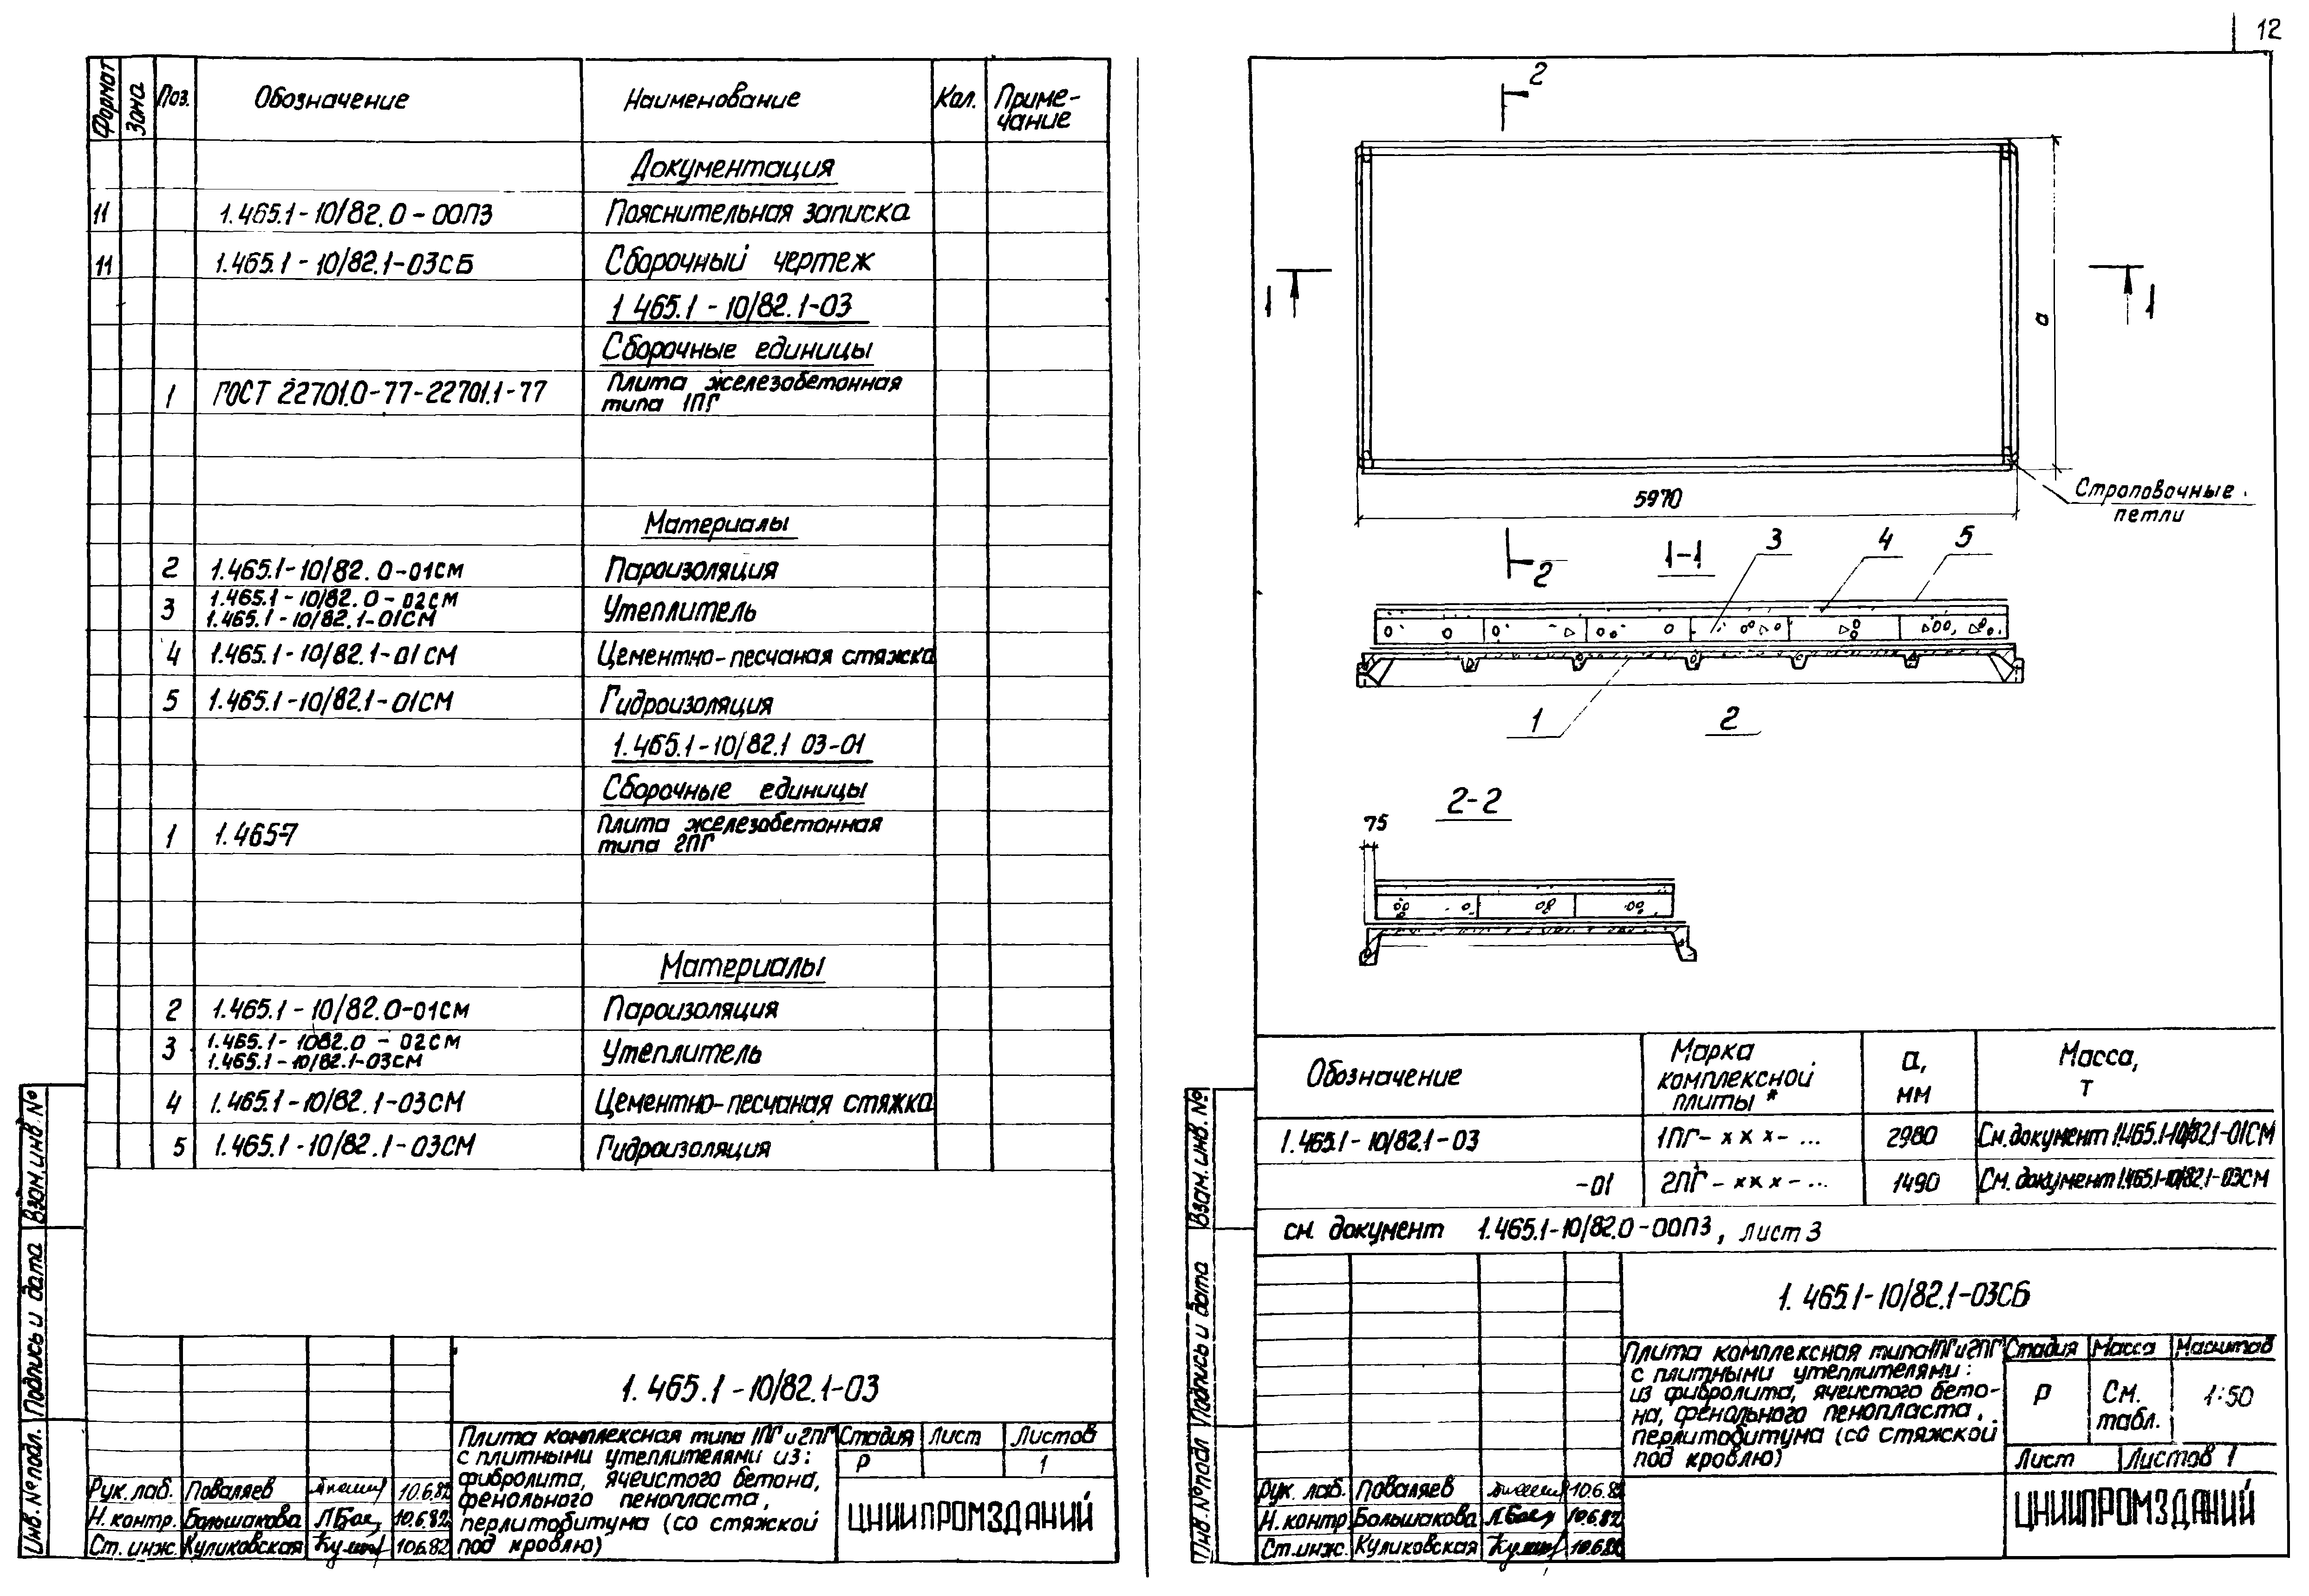 12
Формат
Зона
Поз.
Обозначение
Наименование
Кол.
Приме-
чание
Документация
11 1.465.1-10/82.0-00ПЗ Пояснительная записка
11 1.465.1-10/82.1-03СБ Сборочный чертеж
1.465.1-10/82.1-03
Сборочные единицы
1 ГОСТ 22701.0-77-22701.1-77 Плита железобетонная
типа 1ПГ
Материалы
2 1.465.1-10/82.0-01СМ Пароизоляция
3 1.465.1-10/82.0-02СМ Утеплитель
1.465.1-10/82.1-01СМ
4 1.465.1-10/82.1-01СМ Цементно-песчаная стяжка
5 1.465.1-10/82.1-01СМ Гидроизоляция
1.465.1-10/82.1 03-01
Сборочные единицы
1 1.465-7 Плита железобетонная
типа 2ПГ
Материалы
2 1.465.1-10/82.0-01СМ Пароизоляция
3 1.465.1-1082.0-02СМ Утеплитель
1.465.1-10/82.1-03СМ
4 1.465.1-10/82.1-03СМ Цементно-песчаная стяжка
5 1.465.1-10/82.1-03СМ Гидроизоляция
Взам. инв. №
Подпись и дата
Инв. № подл.
1.465.1-10/82.1-03
Плита комплексная типа 1ПГ и 2ПГ
с плитными утеплителями из:
фибролита, ячеистого бетона,
фенольного пенопласта,
перлитобитума (со стяжкой
под кровлю)
Стадия Лист Листов
Р 1
ЦНИИПРОМЗДАНИЙ
Рук. лаб. Поваляев 10.6.82
Н. контр. Большакова 10.6.82
Ст. инж. Куликовская 10.6.82
2
1
1
а
5970
Строповочные
петли
2
1-1
3
4
5
1
2
2-2
75
Обозначение
Марка
комплексной
плиты *
а,
мм
Масса,
т
1.465.1-10/82.1-03 1ПГ-ххх-... 2980 См. документ 1.465.1-10/82.1-01СМ
-01 2ПГ-ххх-... 1490 См. документ 1.465.1-10/82.1-03СМ
см. документ 1.465.1-10/82.0-00ПЗ, лист 3
Взам. инв. №
Подпись и дата
Инв. № подл
1.465.1-10/82.1-03СБ
Плита комплексная типа 1ПГ и 2ПГ
с плитными утеплителями:
из фибролита, ячеистого бето-
на, фенольного пенопласта,
перлитобитума (со стяжкой
под кровлю)
Стадия Масса Масштаб
Р См. табл. 1:50
Лист Листов 1
ЦНИИПРОМЗДАНИЙ
Рук. лаб. Поваляев 10.6.82
Н. контр Большакова 10.6.82
Ст. инж. Куликовская 10.6.82